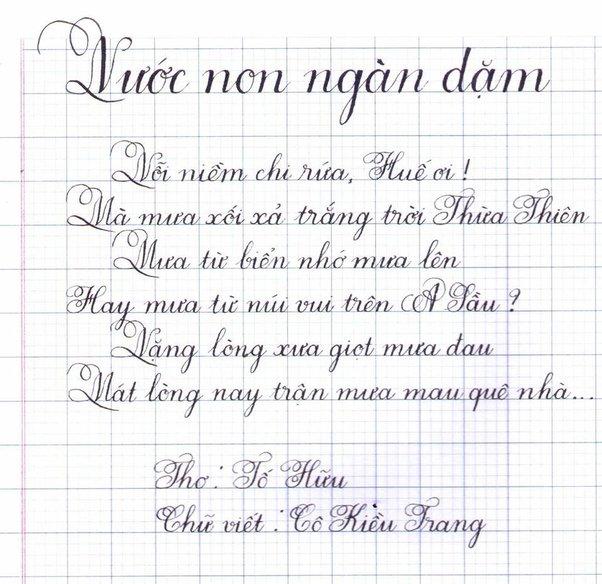 Nước non ngàn dặm
Nỗi niềm chi rứa, Huế ơi !
Mà mưa xối xả trắng trời Thừa Thiên
Mưa từ biển nhớ mưa lên
Hay mưa từ núi vui trên A Sầu ?
Nặng lòng xưa giọt mưa đau
Mát lòng nay trận mưa mau quê nhà...
Thơ : Tố Hữu
Chữ viết : Cô Kiều Trang